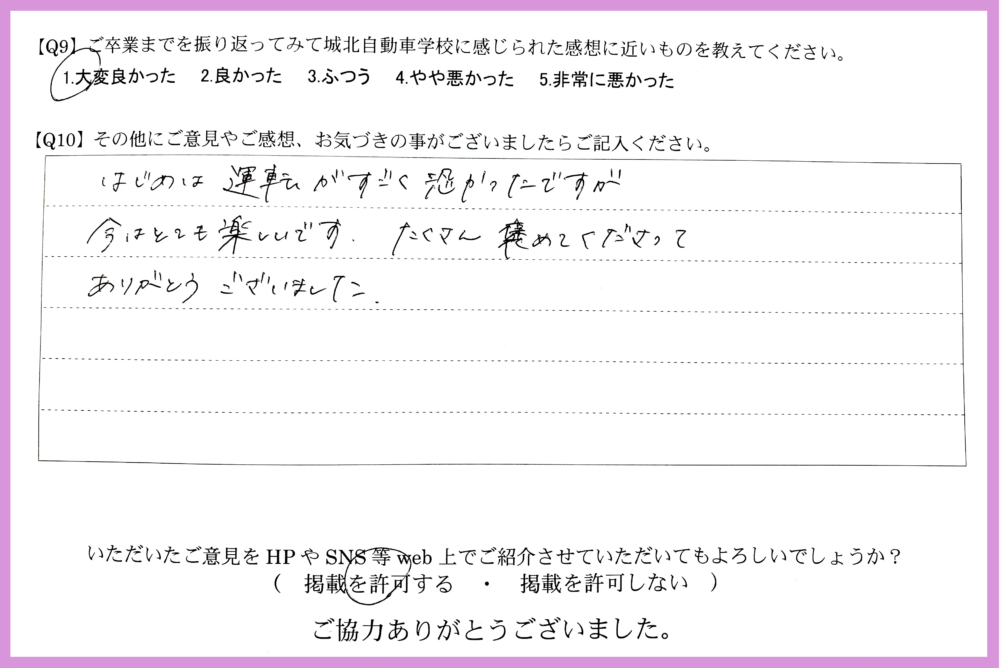 【Q9】ご卒業までを振り返ってみて城北自動車学校に感じられた感想に近いものを教えてください。
1.大変良かった 2.良かった 3.ふつう 4.やや悪かった 5.非常に悪かった
【Q10】その他にご意見やご感想、お気づきの事がございましたらご記入ください。
はじめは 運転がすごく恐かったですが
今はとても楽しいです. たくさん 褒めてくださって
ありがとう ございました.
いただいたご意見を HP や SNS 等 web 上でご紹介させていただいてもよろしいでしょうか？
（ 掲載を許可する ・ 掲載を許可しない ）
ご協力ありがとうございました。